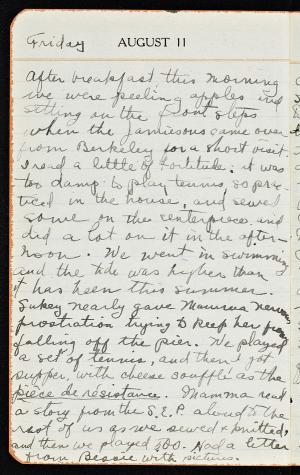 Friday AUGUST 11
After breakfast this morning
we were peeling apples and
sitting on the front steps
when the Jamiesons came over
from Berkeley for a short visit.
I read a little of Fortitude; it was
too damp to play tennis, so prac-
ticed in the house, and sewed
some on the centerpiece and
did a lot on it in the after-
noon. We went in swimming
and the tide was higher than
it has been this summer.
Sukey nearly gave Mamma nervous
prostration trying to keep her from
falling off the pier. We played
a set of tennis, and then I got
supper, with cheese soufflé as the
pièce de résistance. Mamma read
a story from the S.E.P. aloud to the
rest of us as we sewed & knitted,
and then we played 500. Had a letter
from Bessie with pictures.